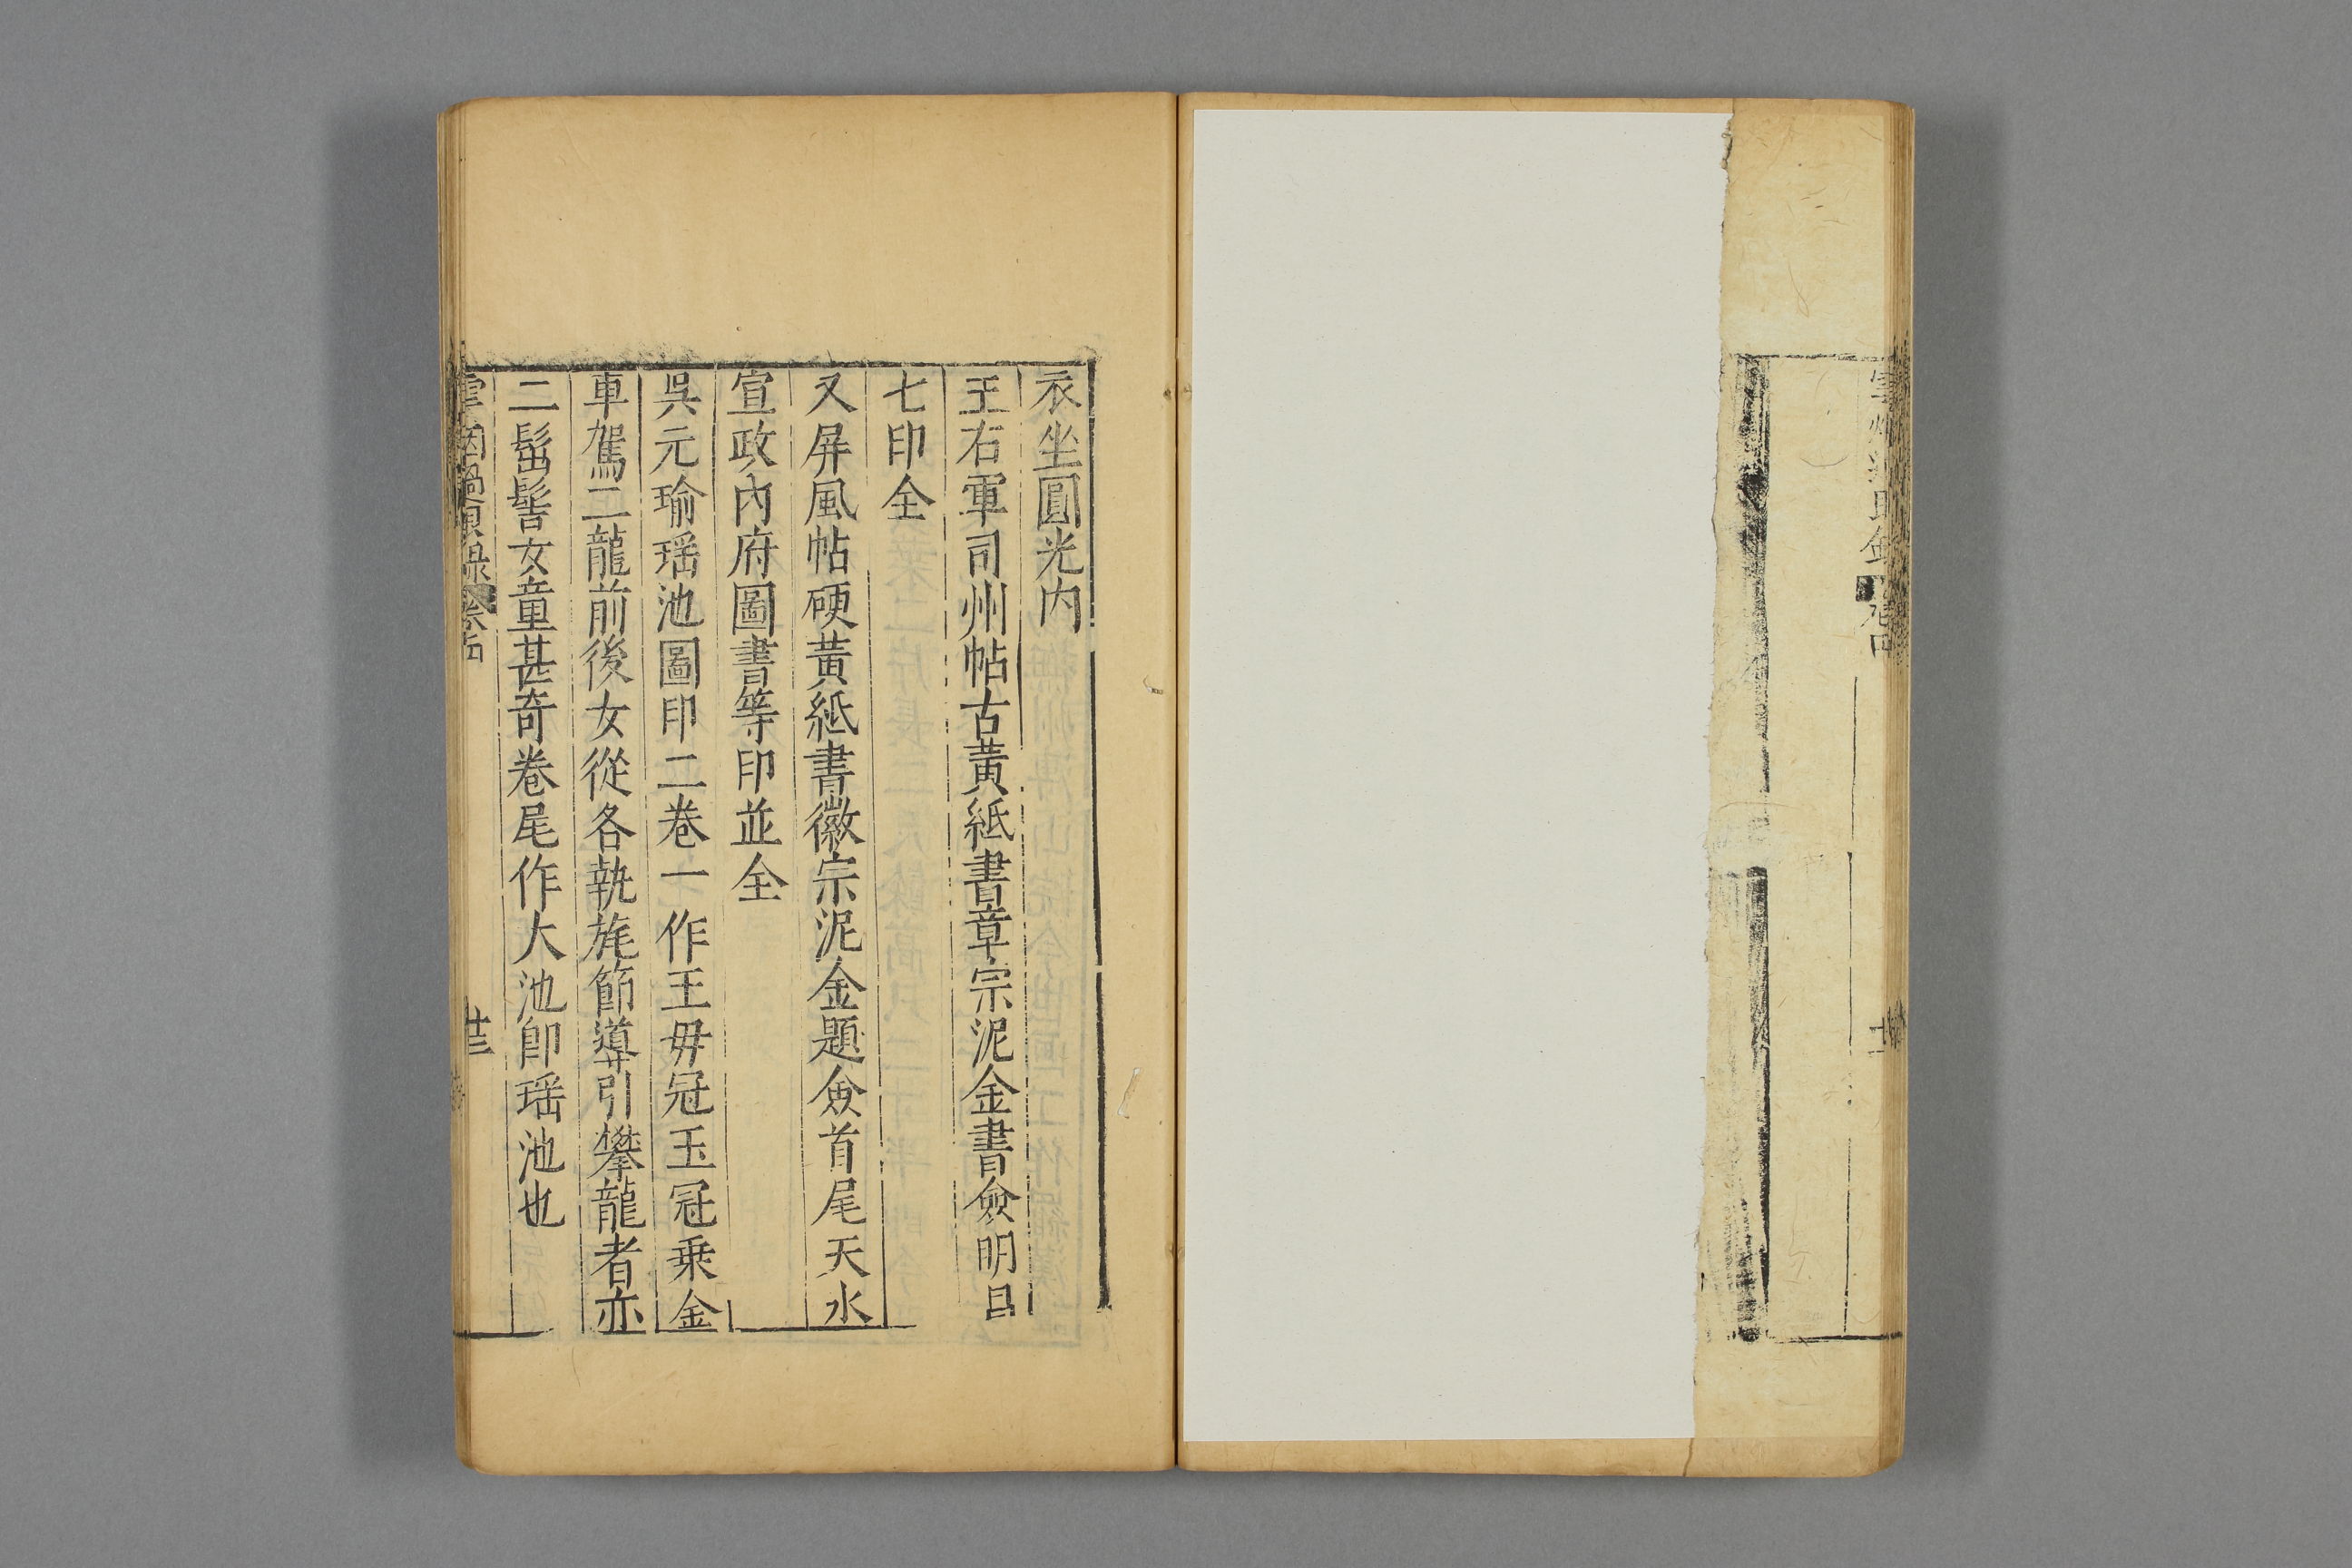 衣坐圓光内
王右軍司州帖古黃紙書章宗泥金書僉明昌
七印全
又屏風帖硬黃紙書徽宗泥金題僉首尾天水
宣政內府圖書等印並全
吳元瑜瑶池圖印二卷一作王毋冠玉冠乗金
車駕二龍前後女從各執旄節導引攀龍者亦
二髽髻女童甚奇卷尾作大池卽瑶池也
雲烟過眼録 卷五
廿三